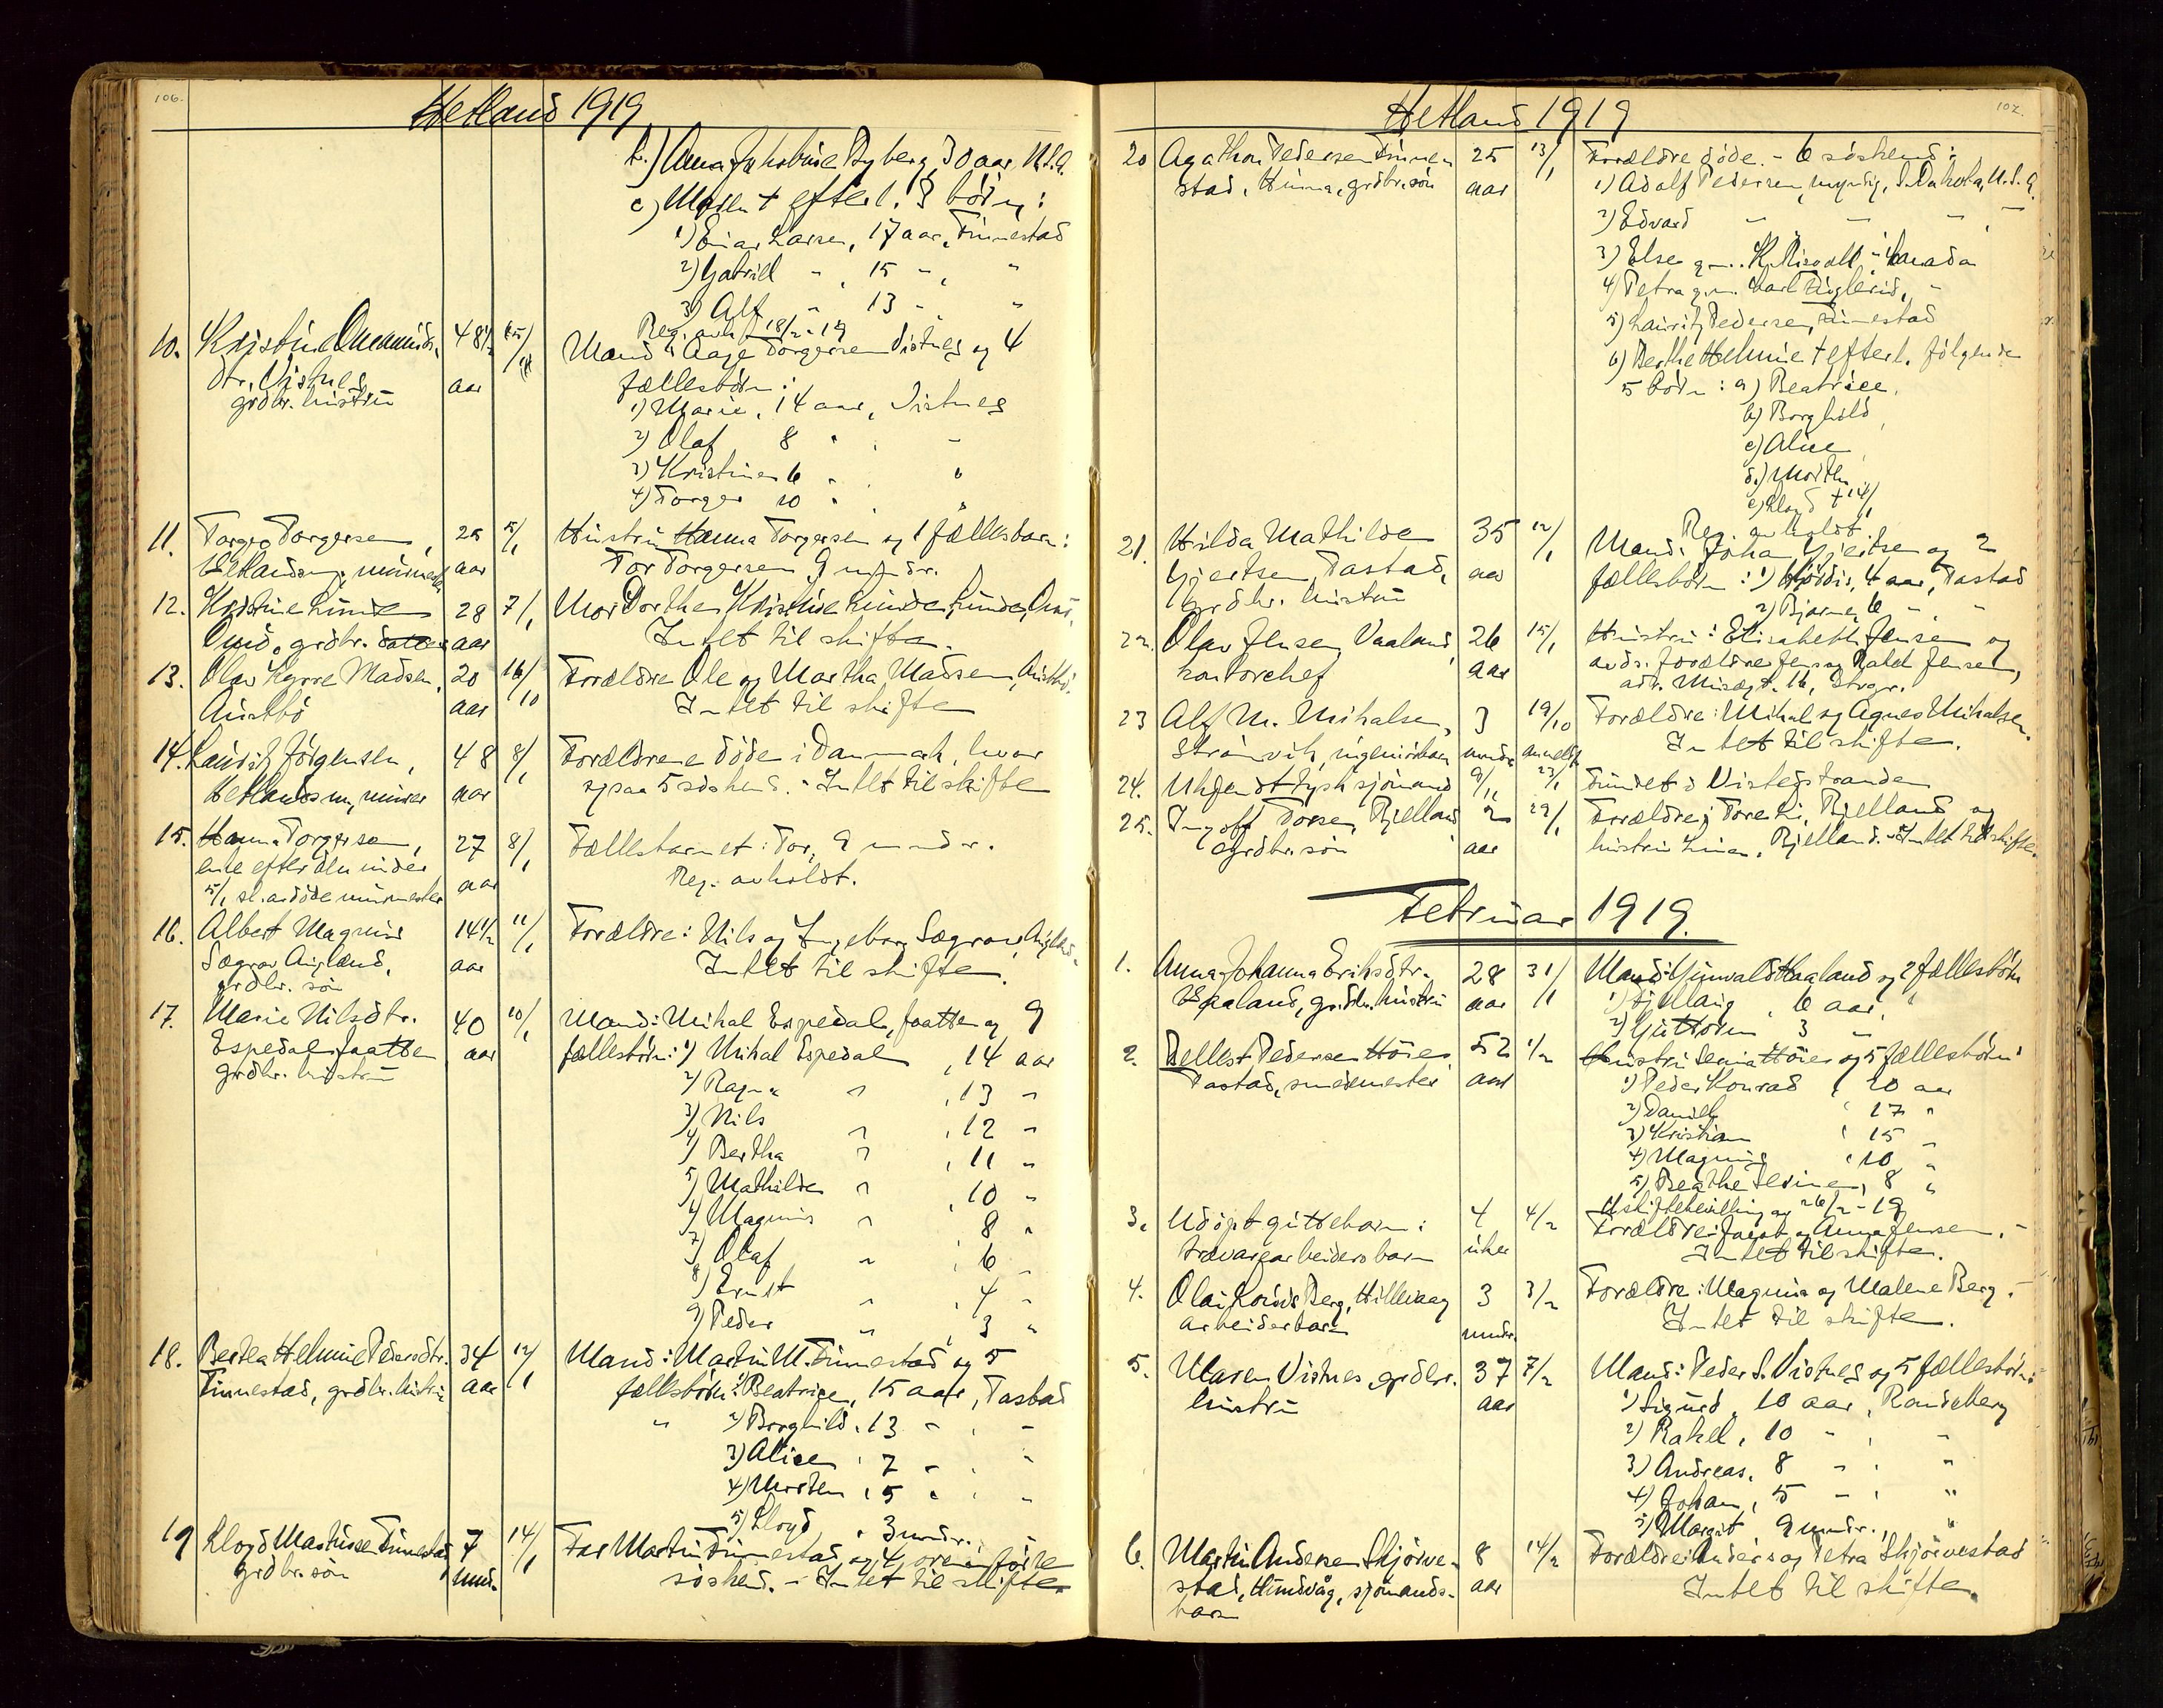 106.
Hetland 1919
b.) Anna Jakobine Byberg, 30 aar, U.S.A.
c) Maren + efterl. 3 börn:
1) Einar Larsen, 17 aar, Finnestad
2) Gabriel " , 15 " , "
3) Alf " 13 " "
Reg. avh. 18/2-19
10. Kristine Aanensdr. 48½ 25/
Mand: Aage Torgersen Vistnes og 4
dtr. Vistnes aar
fællesbörn:
grdbr. hustru
1) Marie, 14 aar, Vistnes
2) Olaf 8 " , "
3) Kristine 6 " , "
4) Torger 10 " , "
11. Torger Torgersen, 25 5/1 Hustru Hanna Torgersen og 1 fællesbarn:
Hetlandsm., aar Tor Torgersen 9 mndr.
12. Kristine Lunde 28 7/1 Mor Dorthe Kristine Lunde, Lunde,
grdbr. datter aar Intet til skifte.
13. Olav Kyrre Madsen, 20 16/10 Forældre Ole og Martha Madsen, Austbö.
Austbö aar Intet til skifte
14. Lauritz Jörgensen, 48 8/1 Forældrene döde i Danmark, hvor
Hetlandsm., murer aar ogsaa 5 söskend. - Intet til skifte
15. Hanna Torgersen, 27 8/1 Fællesbarnet: Tor, 9 mndr.
enke efter den under aar Reg. avholdt.
5/1 sl. avdöde murmester
16. Albert Magnus 14½ 11/1 Forældre: Nils og Ingeborg Sægrov, Auglend.
Sægrov Auglend, aar Intet til skifte.
grdbr. sön
17. Marie Nilsdtr. 40 10/1 Mand: Mikal Espedal, Jaatten og 9
Espedal, Jaatten aar fællesbörn: 1) Mikal Espedal, 14 aar
grdbr. hustru
2) Ragna " , 13 "
3) Nils " , 12 "
4) Bertha " , 11 "
5) Mathilde " , 10 "
6) Magnus " , 8 "
7) Olaf " , 6 "
8) Ernst " , 4 "
9) Peder " , 3 "
18. Bertea Helmine Pedersdtr. 34 12/1 Mand: Martin M. Finnestad og 5
Finnestad, grdbr. hustru aar fællesbörn: 1) Beatrice, 15 aar, Tastad
" 2) Borghild, 13 " , "
3) Alice , 7 " , "
4) Morten , 5 " , "
5) Lloyd , 3 mndr.
19 Lloyd Martinsen Finnestad 7 14/1 Far Martin Finnestad og 4 ovenanförte
grdbr. sön mndr. söskend. - Intet til skifte
107.
Hetland 1919
20 Agathon Pedersen Finne 25 13/1 Forældre döde. - 6 söskend:
stad, Hunna, grdbr. sön aar 1) Adolf Pedersen, myndig, S. Dakota, U.S.A.
2) Edvard " " " "
3) Else g.m. K. , Canada
4) Petra g.m. Karl , "
5) Lauritz Pedersen, Finnestad
6) Berthe Helmine + efterl. fölgende
5 börn: a) Beatrice,
b) Borghild,
c) Alice
d.) Morten
e) Lloyd + 14/1
Reg. avholdt
21. Hilda Mathilde 35 12/1 Mand: Johan Gjertsen og 2
Gjertsen, Tastad, aar fællesbörn: 1) Hjördis, 4 aar, Tastad
grdbr. hustru
2) Bjarne, 6 " "
22. Olav Jensen Vaaland 26 15/1 Hustru: Elisabeth Jensen og
kontorchef aar avds. forældre Jens og Rakel Jensen,
adr. Misjsgt. 16, Stvgr.
23 Alf M. Mihalsen, 3 19/10 Forældre: Mihal og Agnes Mihalsen.
Strömvik, ingeniörbarn mndr. anmeldt Intet til skifte.
24. Ukjendt tysk sjömand 9/11 23/1 Fundet i Vistestranden
25. Ingolf Torsen, Bjelland 2 29/1 Forældre: Tore Ki. Bjelland og
Grdbr. sön aar hustru Lina, Bjelland. - Intet til skifte.
Februar 1919.
1. Anna Johanna Eriksdtr. 28 31/1 Mand: Gunvald Haaland og 2 fællesbörn
Haaland, grdbr. hustru aar 1) Fjellaug , 6 aar, "
2) Guttorm 3 "
2. Bellest Pedersen Höie 52 1/2 Hustru Senia Höie og 5 fællesbörn:
Tastad, smedmester aar 1) Peder Konrad , 20 aar
2) Daniel , 17 "
3) Kristian , 15 "
4) Magnus , 10 "
5) Beathe Seline, 8 "
Uskiftebevilling av 26/2-19
3. Udöpt guttebarn: 4 4/2 Forældre: og Anna Jensen. -
barn uker Intet til skifte.
4. Olai Berg, Hillevaag 3 3/2 Forældre: Magnus og Malene Berg. -
arbeiderbarn mndr. Intet til skifte.
5. Maren Vistnes, grdbr. 37 7/2 Mand: Peder S. Vistnes og 5 fællesbörn:
hustru aar 1) Sigurd, 10 aar, Randeberg
2) Rakel, 10 " , "
3) Andreas, 8 " , "
4) Johan, 5 " , "
5) Margit, 9 mndr., "
6. Martin Andersen Skjörve- 8 14/2 Forældre: Anders og Petra Skjörvestad
stad, Hundvåg, sjömands- aar Intet til skifte.
barn